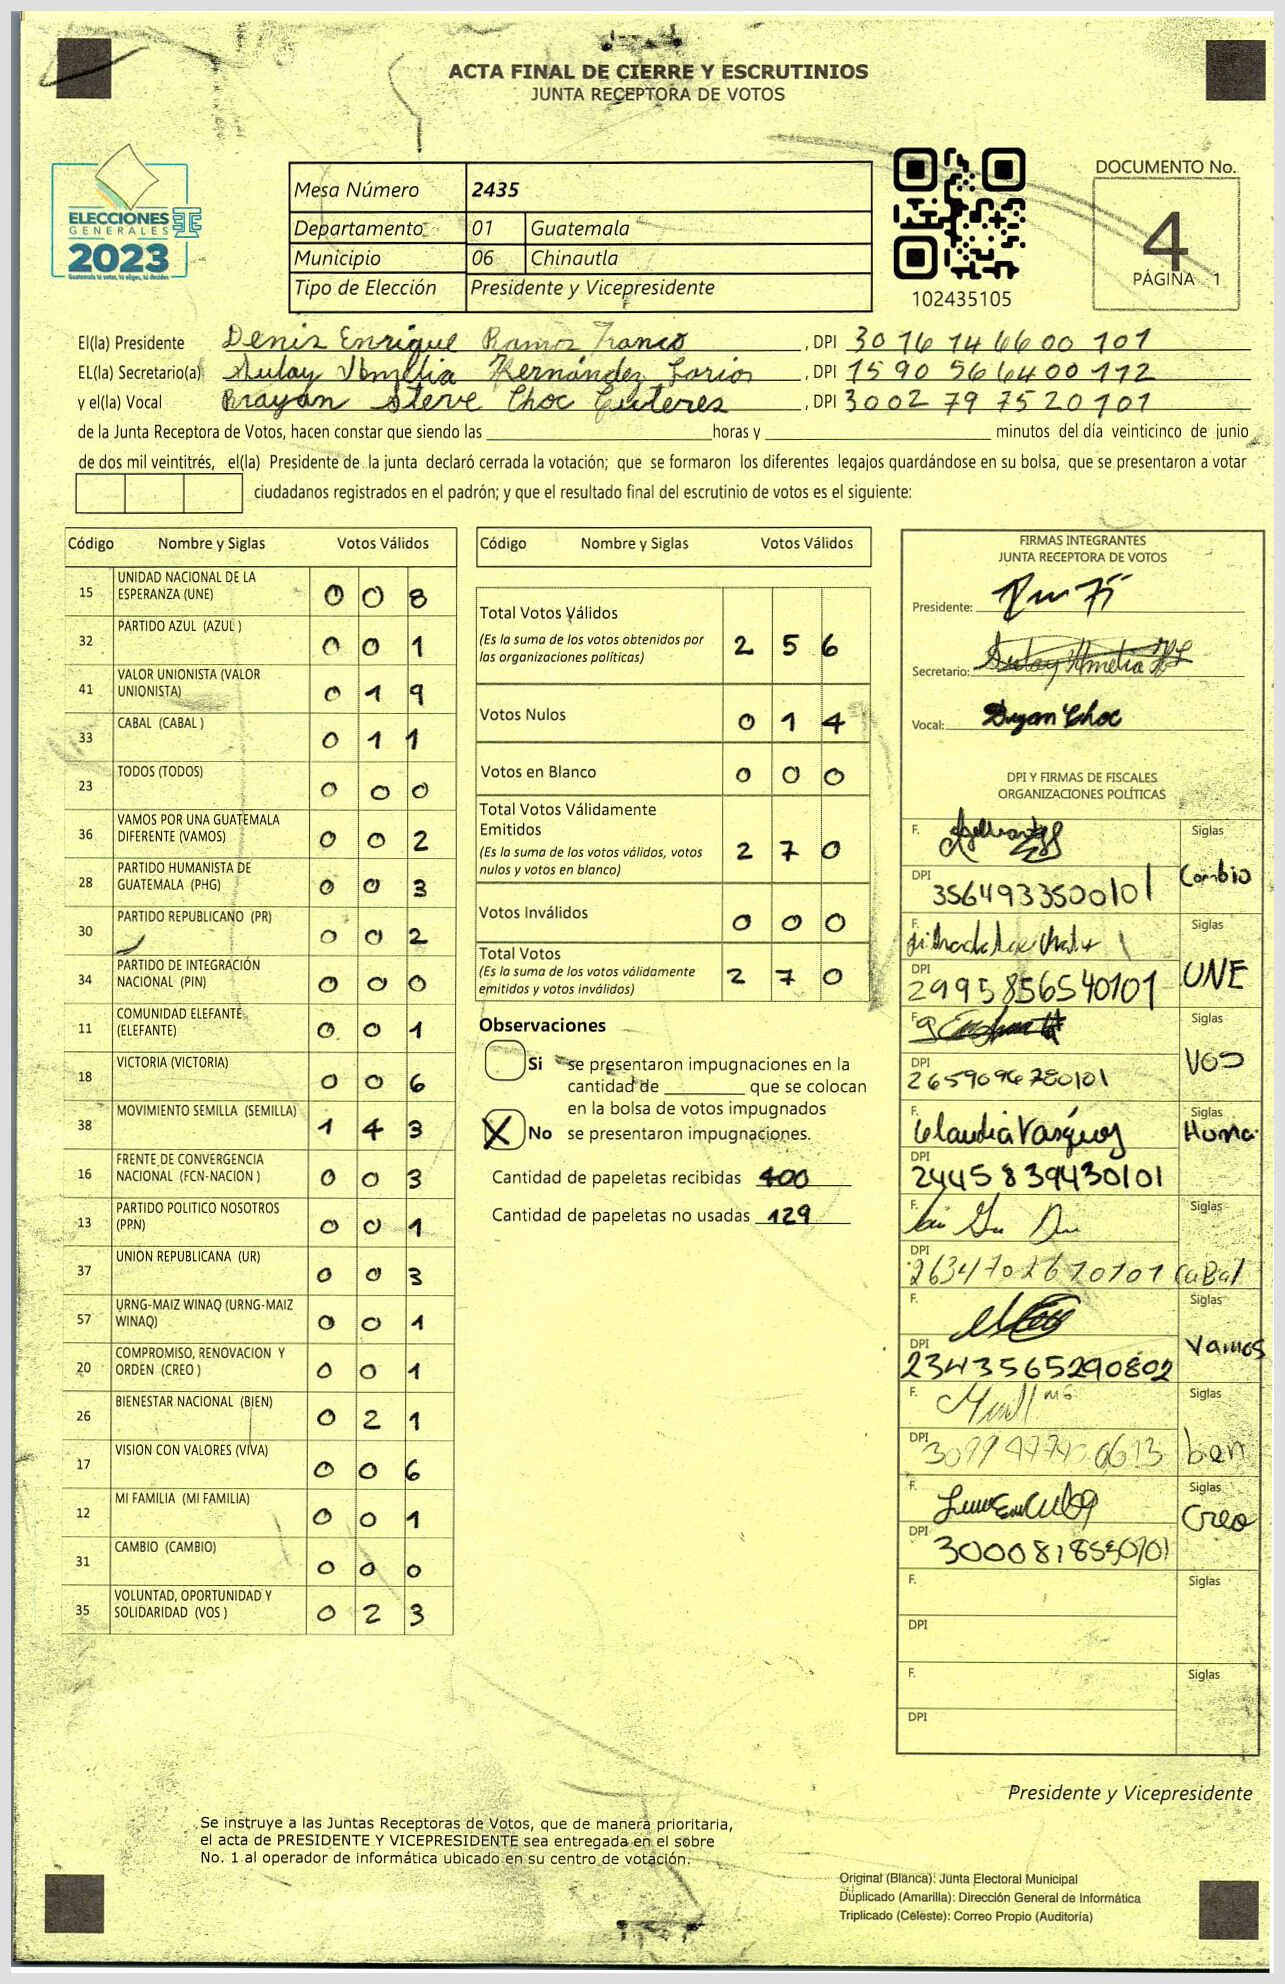 ACTA FINAL DE CIERRE Y ESCRUTINIOS
JUNTA RECEPTORA DE VOTOS
ELECCIONES
GENERALES
2023
Guatemala tú votas, tú eliges, tú decides
Mesa Número 2435
Departamento 01 Guatemala
Municipio 06 Chinautla
Tipo de Elección Presidente y Vicepresidente
102435105
DOCUMENTO No.
4
PÁGINA 1
El(la) Presidente Denis Enrique Ramos Franco, DPI 3016 14 6600 101
EL(la) Secretario(a) Sulay Amelia Hernández Larios, DPI 1590 566400 112
y el(la) Vocal Brayan Steve Choc Cuteres, DPI 3002 79 7520101
de la Junta Receptora de Votos, hacen constar que siendo las horas y minutos del día veinticinco de junio
de dos mil veintitrés, el(la) Presidente de la junta declaró cerrada la votación; que se formaron los diferentes legajos guardándose en su bolsa, que se presentaron a votar
ciudadanos registrados en el padrón; y que el resultado final del escrutinio de votos es el siguiente:
Código Nombre y Siglas Votos Válidos
15 UNIDAD NACIONAL DE LA ESPERANZA (UNE) 0 0 8
32 PARTIDO AZUL (AZUL ) 0 0 1
41 VALOR UNIONISTA (VALOR UNIONISTA) 0 1 9
33 CABAL (CABAL ) 0 1 1
23 TODOS (TODOS) 0 0 0
36 VAMOS POR UNA GUATEMALA DIFERENTE (VAMOS) 0 0 2
28 PARTIDO HUMANISTA DE GUATEMALA (PHG) 0 0 3
30 PARTIDO REPUBLICANO (PR) 0 0 2
34 PARTIDO DE INTEGRACIÓN NACIONAL (PIN) 0 0 0
11 COMUNIDAD ELEFANTE (ELEFANTE) 0 0 1
18 VICTORIA (VICTORIA) 0 0 6
38 MOVIMIENTO SEMILLA (SEMILLA) 1 4 3
16 FRENTE DE CONVERGENCIA NACIONAL (FCN-NACION ) 0 0 3
13 PARTIDO POLITICO NOSOTROS (PPN) 0 0 1
37 UNION REPUBLICANA (UR) 0 0 3
57 URNG-MAIZ WINAQ (URNG-MAIZ WINAQ) 0 0 1
20 COMPROMISO, RENOVACION Y ORDEN (CREO ) 0 0 1
26 BIENESTAR NACIONAL (BIEN) 0 2 1
17 VISION CON VALORES (VIVA) 0 0 6
12 MI FAMILIA (MI FAMILIA) 0 0 1
31 CAMBIO (CAMBIO) 0 0 0
35 VOLUNTAD, OPORTUNIDAD Y SOLIDARIDAD (VOS ) 0 2 3
Código Nombre y Siglas Votos Válidos
Total Votos Válidos 2 5 6
(Es la suma de los votos obtenidos por
las organizaciones políticas)
Votos Nulos 0 1 4
Votos en Blanco 0 0 0
Total Votos Válidamente
Emitidos 2 7 0
(Es la suma de los votos válidos, votos
nulos y votos en blanco)
Votos Inválidos 0 0 0
Total Votos 2 7 0
(Es la suma de los votos válidamente
emitidos y votos inválidos)
Observaciones
Si se presentaron impugnaciones en la
cantidad de que se colocan
en la bolsa de votos impugnados
X No se presentaron impugnaciones.
Cantidad de papeletas recibidas 400
Cantidad de papeletas no usadas 129
FIRMAS INTEGRANTES
JUNTA RECEPTORA DE VOTOS
Presidente:
Secretario: Sulay Amelia HL
Vocal: Brayan Choc
DPI Y FIRMAS DE FISCALES
ORGANIZACIONES POLÍTICAS
F. Siglas
DPI 3564933500101 Cambio
F. Siglas
DPI 2995856540101 UNE
F. Siglas
DPI 2659096780101 VOS
F. Claudia Vásquez Siglas
DPI 2445839430101 Huma.
F. Siglas
DPI 2634702670101 CaBal
F. Siglas
DPI 2343565290802 Vamos
F. Siglas
DPI ben
F. Siglas
DPI 3000818550101 Creo
F. Siglas
DPI
F. Siglas
DPI
Presidente y Vicepresidente
Se instruye a las Juntas Receptoras de Votos, que de manera prioritaria,
el acta de PRESIDENTE Y VICEPRESIDENTE sea entregada en el sobre
No. 1 al operador de informática ubicado en su centro de votación.
Original (Blanca): Junta Electoral Municipal
Duplicado (Amarilla): Dirección General de Informática
Triplicado (Celeste): Correo Propio (Auditoría)